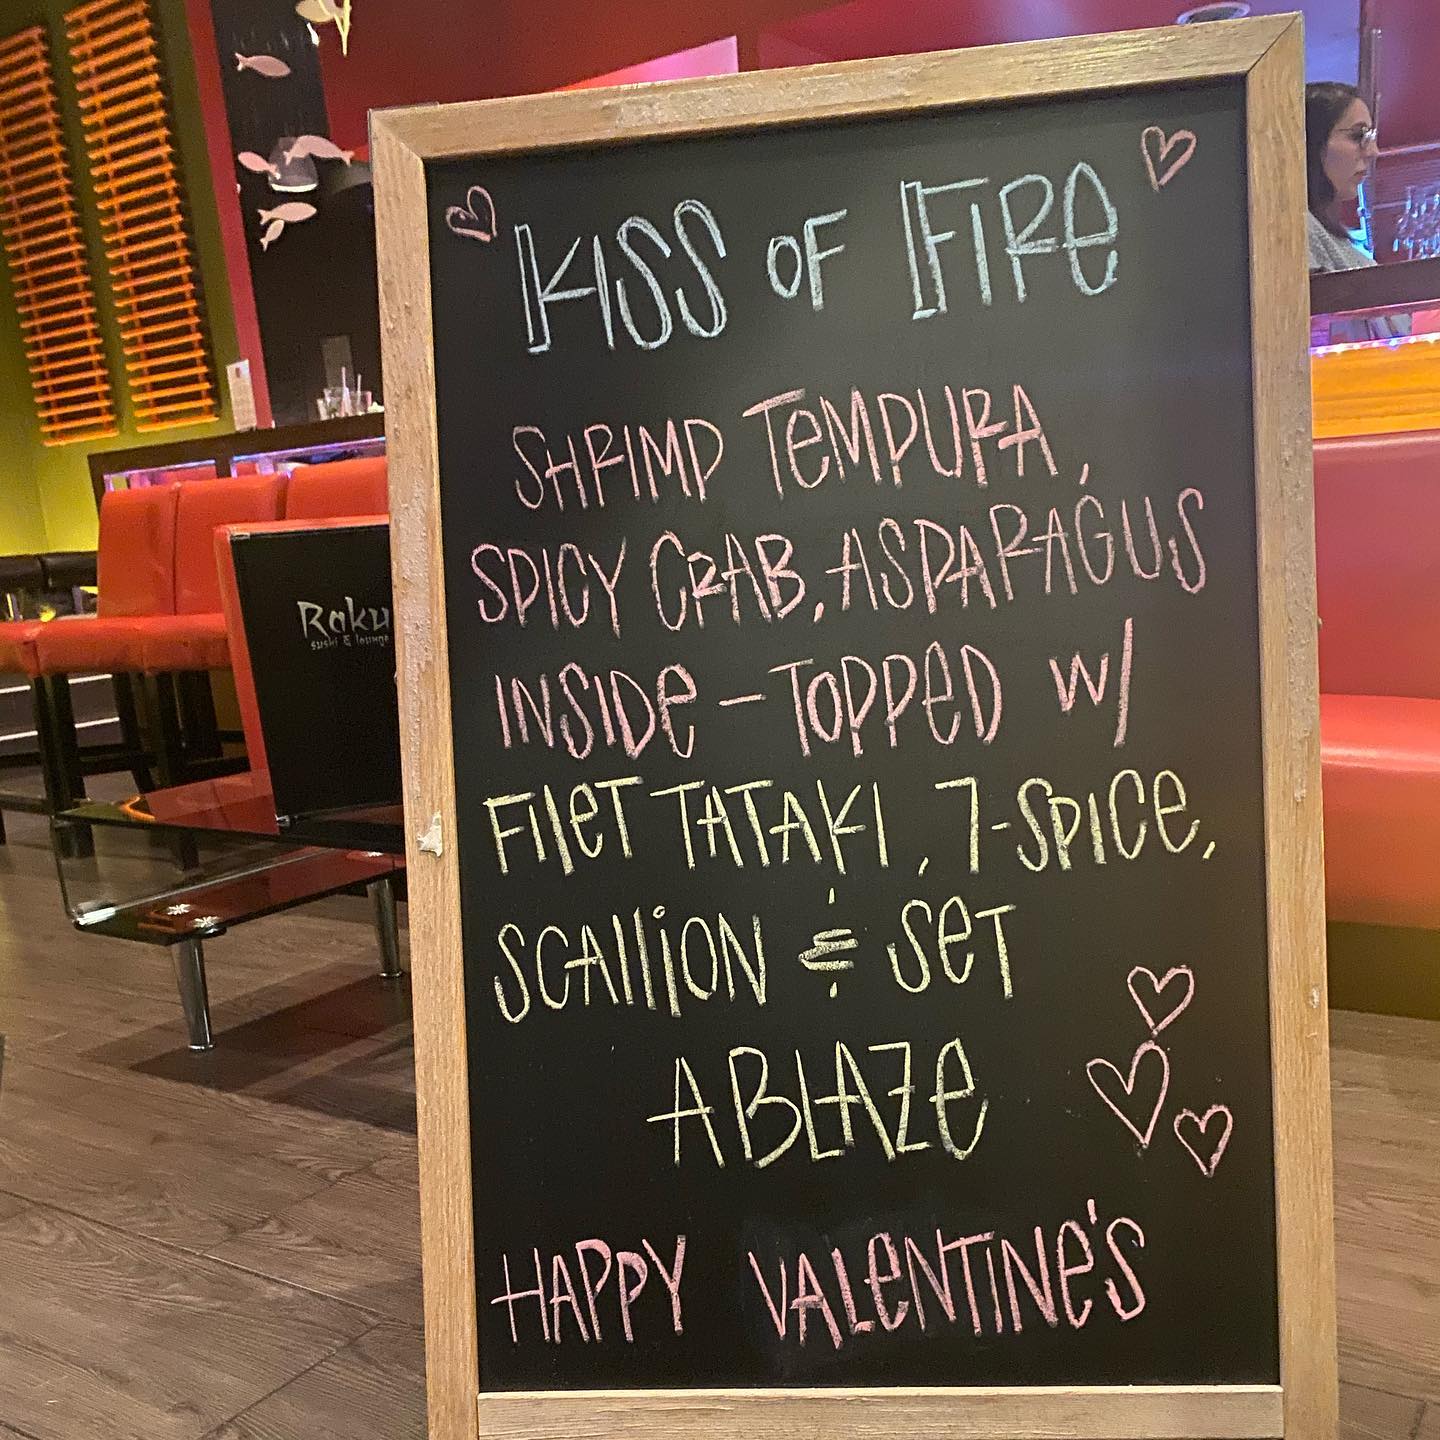 KISS OF FIRE
SHRIMP TEMPURA,
SPICY CRAB, ASPARAGUS
INSIDE - TOPPED W/
FILET TATAKI, 7-SPICE,
SCALLION & SET
ABLAZE
HAPPY VALENTINE'S
Raku
sushi & lounge